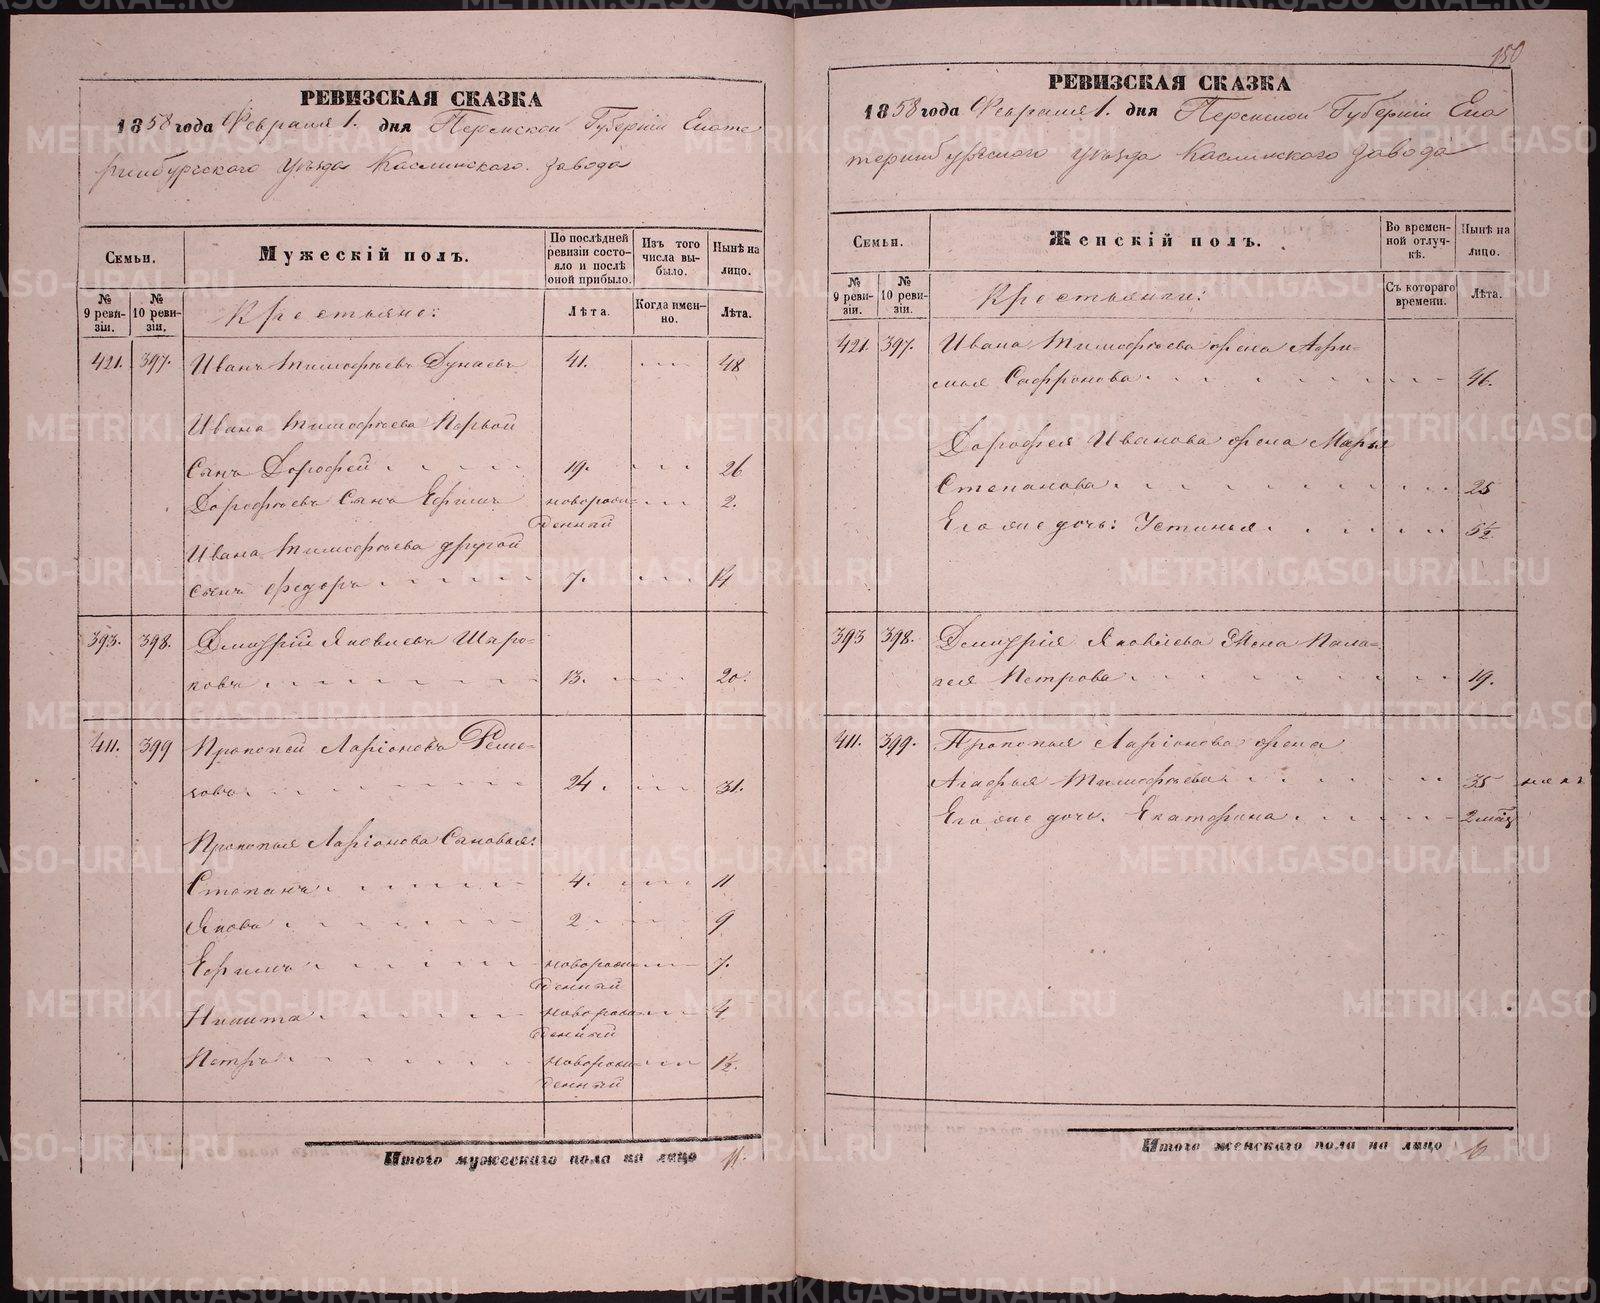 РЕВИЗСКАЯ СКАЗКА
1858 года Февраля 1. дня Пермской Губерніи Екате
ринбургского Уѣзда Каслинского Завода
Семьи.
Мужескій полъ.
По послѣдней ревизіи состояло и послѣ оной прибыло.
Изъ того числа выбыло.
Нынѣ на лицо.
№ 9 ревизіи.
№ 10 ревизіи.
Крестьяне:
Лѣта.
Когда именно.
Лѣта.
421. 397. Иванъ Тимофѣевъ Дунаевъ 41. 48
Ивана Тимофѣева Первой
Сынъ Дорофей 19. 26
Дорофѣевъ Сынъ Ефимъ новорож- 2.
денный
Ивана Тимофѣева другой
сынъ Федоръ 7. 14
393. 398. Дмитрій Яковлевъ Шаро-
повъ 13. 20.
411. 399 Прокопей Ларіоновъ
24. 31.
Прокопья Ларіонова Сыновья:
Степанъ 4. 11
Яковъ 2 9
Ефимъ новорож- 7.
денный
Никита новорож- 4
денный
Петръ новорож- 1½.
денный
Итого мужескаго пола на лицо 11.
150
РЕВИЗСКАЯ СКАЗКА
1858 года Февраля 1. дня Пермской Губерніи Ека
теринбургского Уѣзда Каслинского Завода
Семьи.
Женскій полъ.
Во временной отлучкѣ.
Нынѣ на лицо.
№ 9 ревизіи.
№ 10 ревизіи.
Крестьянки:
Съ котораго времени.
Лѣта.
421. 397. Ивана Тимофѣева жена Афи-
мья Сафронова 46.
Дорофея Иванова жена Марья
Степанова 25
Его же дочь: Устинья 5½
393 398. Дмитрія Яковлева Жена Пела-
гея Петрова 19.
411. 399. Прокопья Ларіонова жена
Агафья Тимофѣева 35
Его же дочь. Екатерина 2 мѣс
Итого женскаго пола на лицо 6
METRIKI.GASO-URAL.RU